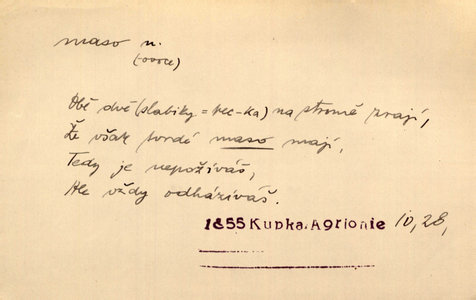 maso n.
(ovoce)
Obě dvě (slabiky = pec-ka) na stromě zrají,
Že však tvrdé maso mají,
Tedy je nepožíváš,
Ale vždy odhazíváš.
1855 Kupka: Agrionie 10, 28,